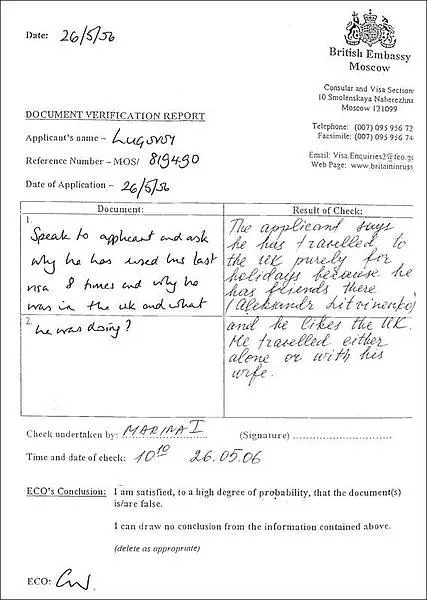 Date: 26/5/06
British Embassy
Moscow
Consular and Visa Section
10 Smolenskaya Naberezhna
Moscow 121099
DOCUMENT VERIFICATION REPORT
Telephone: (007) 095 956 72
Facsimile: (007) 095 956 74
Applicant's name – Lugovoy
Reference Number – MOS/ 819490
Email: Visa.Enquiries2@fco.go
Web Page: www.britaininrus
Date of Application – 26/5/06
Document:
Result of Check:
1.
Speak to applicant and ask
why he has used his last
visa 8 times and why he
was in the UK and what
2.
he was doing?
The applicant says
he has travelled to
the UK purely for
holidays because he
has friends there
(Aleksandr Litvinenko)
and he likes the UK.
He travelled either
alone or with his
wife.
Check undertaken by: MARINA I
(Signature)
Time and date of check: 10 10 26.05.06
ECO's Conclusion: I am satisfied, to a high degree of probability, that the document(s)
is/are false.
I can draw no conclusion from the information contained above.
(delete as appropriate)
ECO: